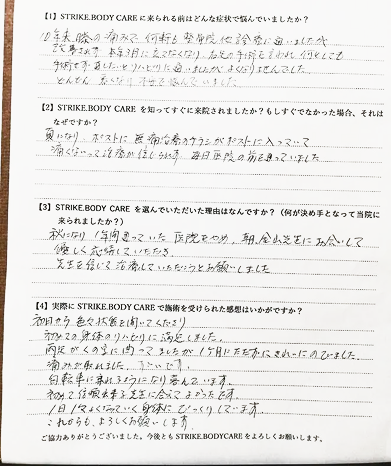 【1】STRIKE.BODY CARE に来られる前はどんな症状で悩んでいましたか?
10年来、膝の痛みで何軒も整骨院他診療に通いましたが
改善されず
【2】STRIKE.BODY CARE を知ってすぐに来院されましたか?もしすぐでなかった場合、それは
なぜですか?
夏になり、ポストに無痛治療のチラシがポストに入っていて
痛くないって治療が信じられず、毎日医院の前を通っていました
【3】STRIKE.BODY CARE を選んでいただいた理由はなんですか?(何が決め手となって当院に
来られましたか?)
秋になり1年間通っていた医院をやめ、朝、金山先生にお会いして
優しく応対していただき、
先生を信じる治療していただこうとお願いしました
【4】実際に STRIKE.BODY CARE で施術を受けられた感想はいかがですか?
初日から色々状態を聞いてくださり
初めての身体のリハビリに満足しました。
両足がくの字に曲ってましたが1ケ月にたたずにきれいにのびました。
痛みが取れました。すごいです。
自転車に乗れるようになり喜んでいます。
初めて信頼出来る先生に会えてよかったです。
1日1日よくなっていく身体にびっくりしています。
これからも、よろしくお願いします。
ご協力ありがとうございました。今後とも STRIKE.BODYCARE をよろしくお願いします。